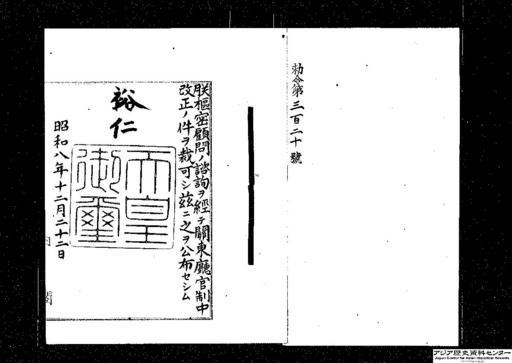 勅令第三百二十號
朕樞密顧問ノ諮詢ヲ經テ關東廳官制中
改正ノ件ヲ裁可シ茲ニ之ヲ公布セシム
裕仁
天皇御璽
昭和八年十二月二十二日
アジア歴史資料センター
Japan Center for Asian Historical Records